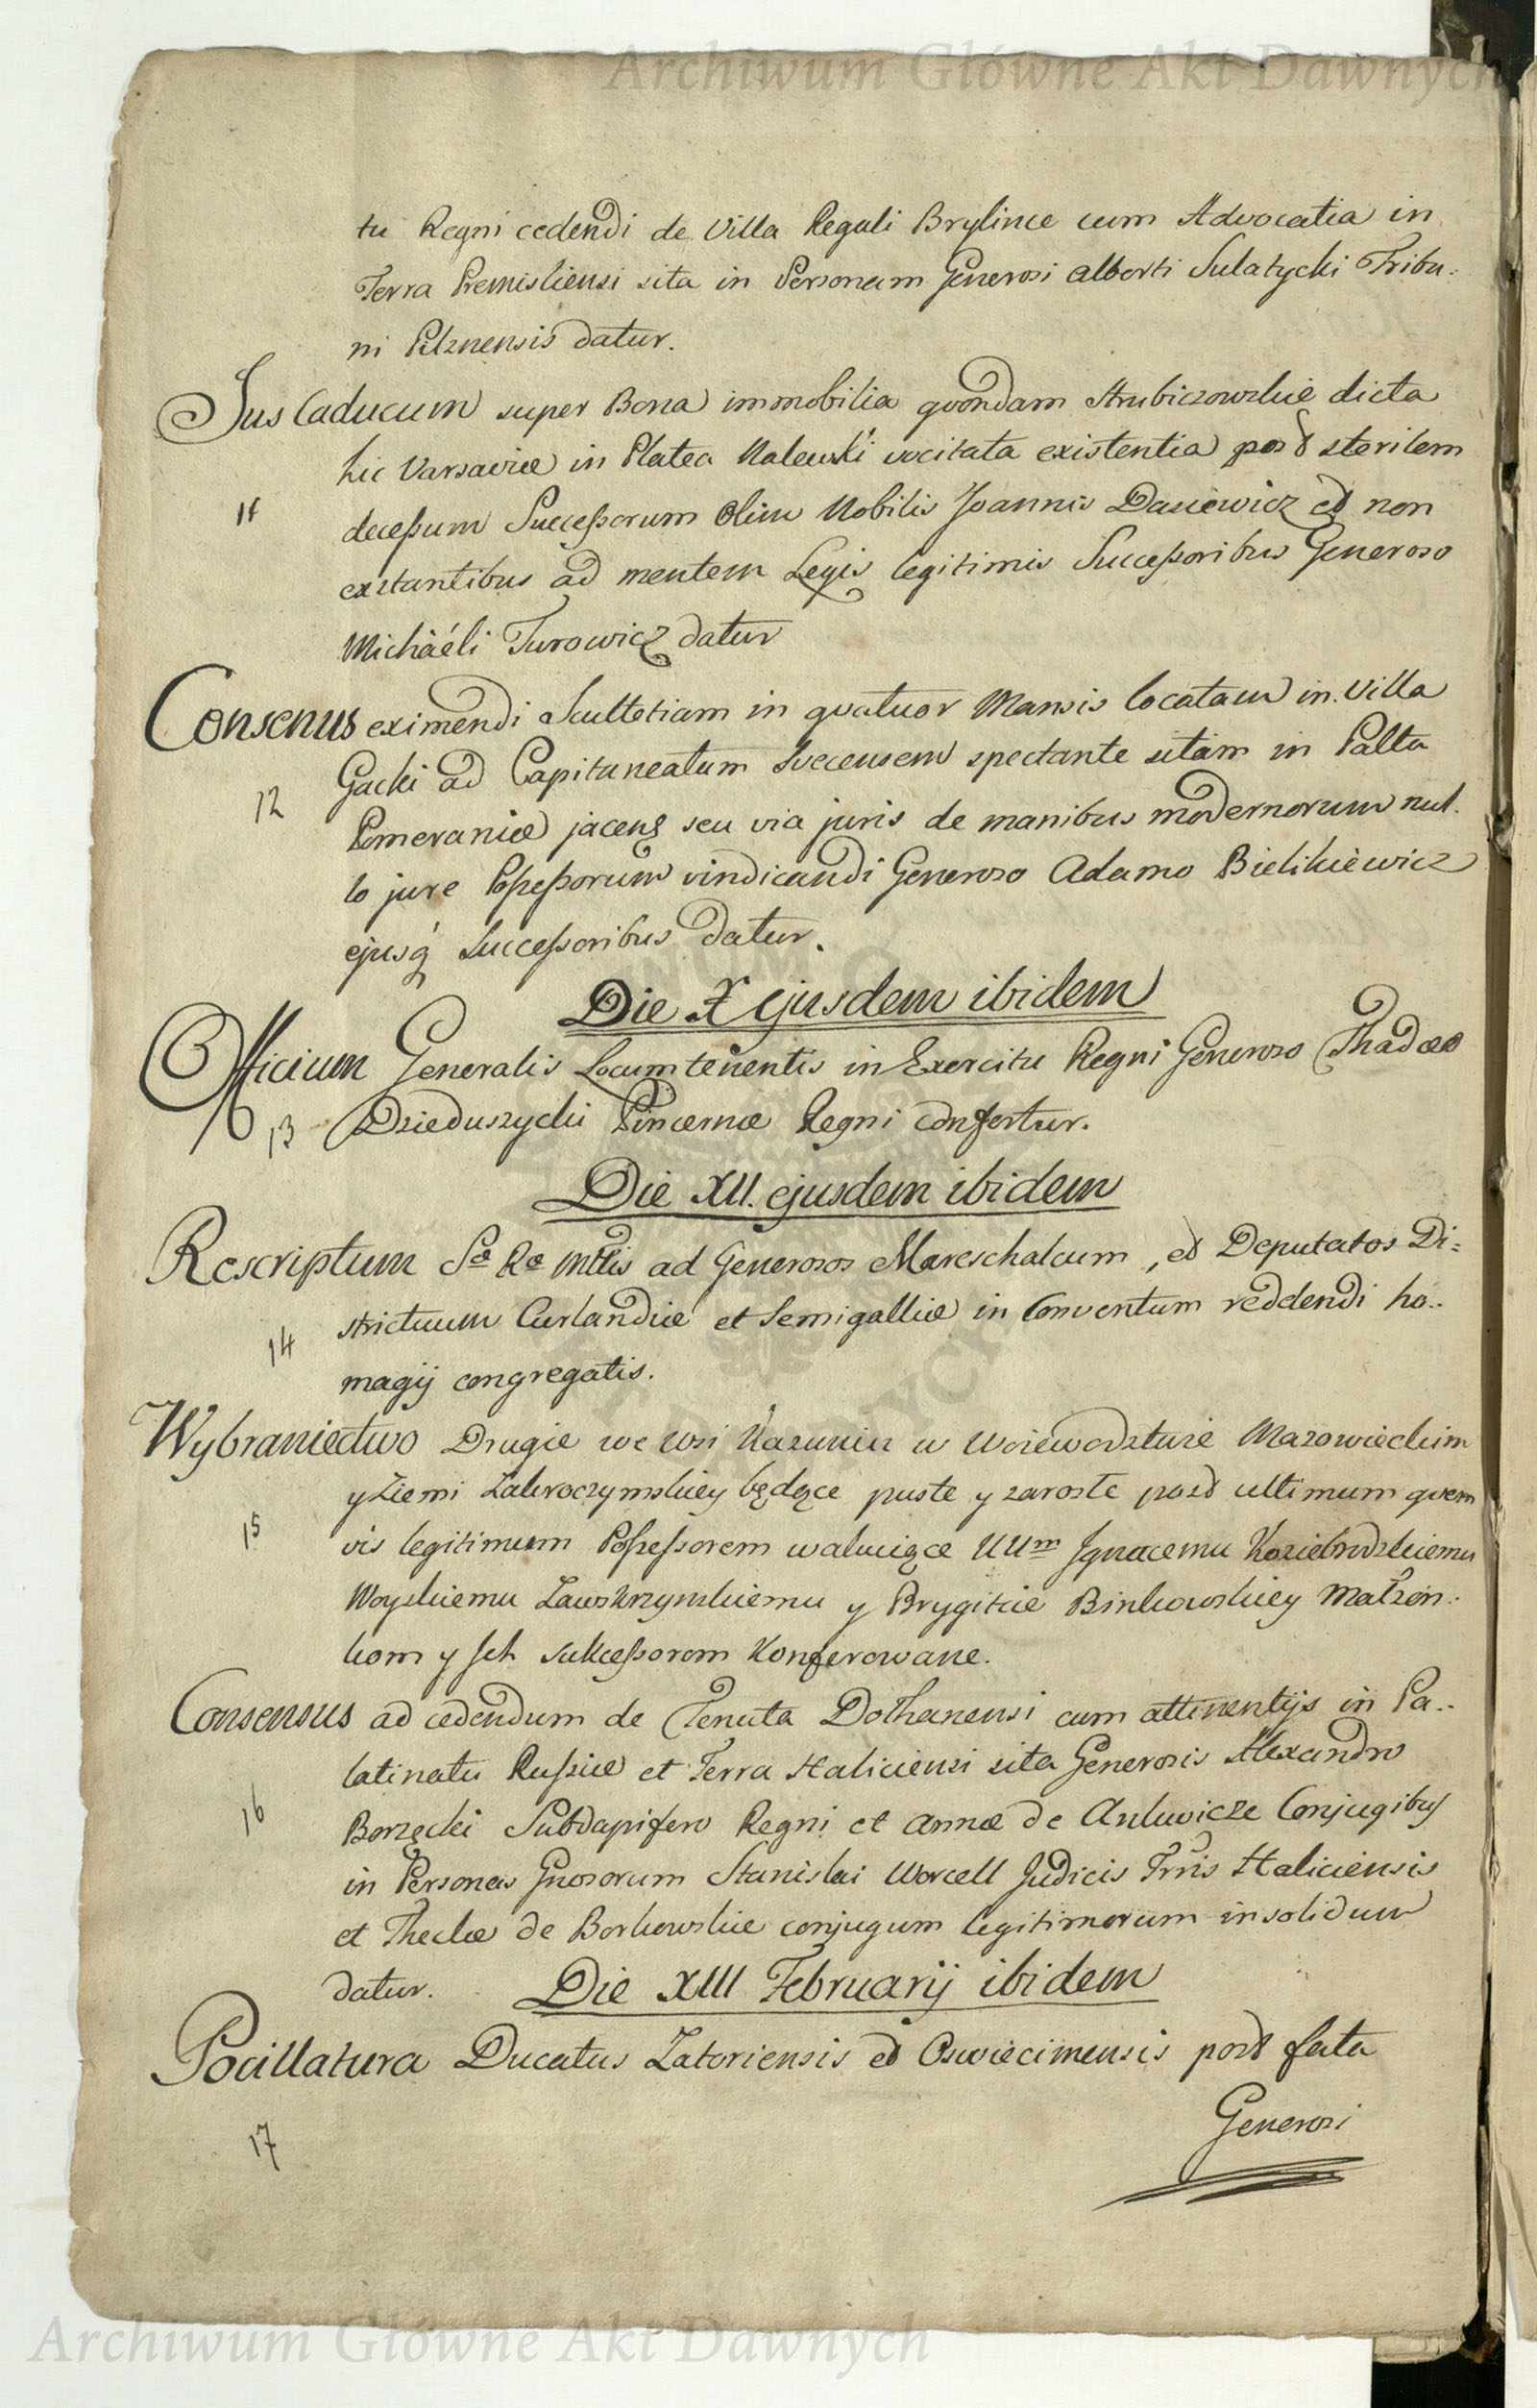 Archiwum Główne Akt Dawnych
tu Regni cedendi de Villa Regali Brylince cum Advocatia in
Terra Premisliensi sita in Personam Generosi Alberti Sulatycki Tribu:
ni Pilznensis datur.
Jus Caducum super Bona immobilia qvondam Strubiczowskie dicta
hic Varsaviæ in Platea Nalewki vocitata existentia post sterilem
11 decessum Successorum Olim Nobilis Joannis Dasiewicz et non
exstantibus ad mentem Legis legitimis Successoribus Generoso
Michaéli Turowicz datur
Consensus eximendi Scultetiam in qvatuor Mansis locatam in Villa
12 Gacki ad Capitaneatum Svecensem spectante sitam in Palttu
Pomeraniæ jacens seu via juris de manibus modernorum nul.
lo jure Possessorum vindicandi Generoso Adamo Bielikiewicz
ejusq Successoribus datur.
Die X ejusdem ibidem
Officium Generalis Locumtenentis in Exercitu Regni Generoso Thadæo
13 Dzieduszycki Pincernæ Regni confertur.
Die XII. ejusdem ibidem
Rescriptum Sæ Ræ Mttis ad Generosos Mareschalcum, et Deputatos Di=
14 strictuum Curlandiæ et Semigalliæ in Conventum reddendi ho..
magij congregatis.
Wybraniectwo Drugie we Wsi Kazuniu w Woiewodztwie Mazowieckim
y Ziemi Zakroczymskiey będące puste y zarosłe post ultimum qvem
15 vis legitimum Possessorem wakuiące UUm Jgnacemu Koziebrodzkiemu
Woyskiemu Zawskrzynskiemu y Brygitcie Binkowskiey Małżon:
kom y Jch sukcessorom Konferowane.
Consensus ad cedendum de Tenuta Dothanensi cum attinentijs in Pa..
latinatu Russiæ et Terra Haliciensi sita Generosis Alexandro
16 Borzęcki Subdapifero Regni et Annæ de Ankwicze Conjugibus
in Personas Gnosorum Stanislai Worcell Judicis Trris Haliciensis
et Theclæ de Borkowskie conjugum legitimorum insolidum
datur. Die XIII Februarij ibidem
Pocillatura Ducatus Zatoriensis et Oswiecimensis post fata
17 Generosi
Archiwum Główne Akt Dawnych